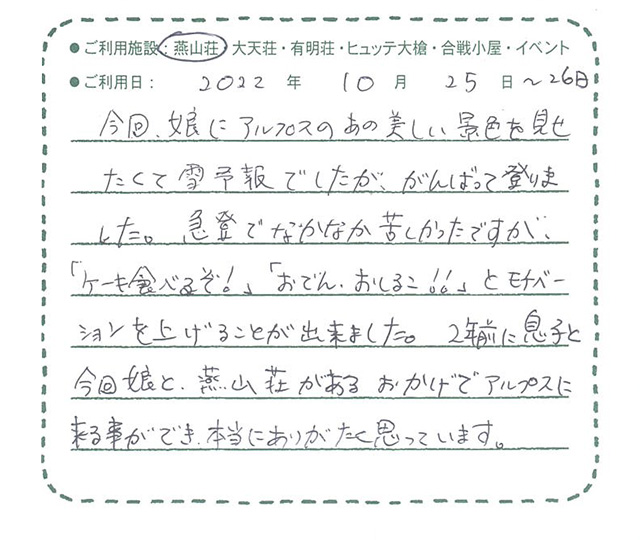 ●ご利用施設:燕山荘・大天荘・有明荘・ヒュッテ大槍・合戦小屋・イベント
●ご利用日: 2022年10月25日~26日
今回、娘にアルプスのあの美しい景色を見せ
たくて雪予報でしたが、がんばって登りま
した。急登でなかなか苦しかったですが、
「ケーキ食べるぞ!」「おでん、おしるこ!!」とモチベー
ションを上げることが出来ました。2年前に息子と
今回娘と、燕山荘があるおかげでアルプスに
来る事ができ、本当にありがたく思っています。